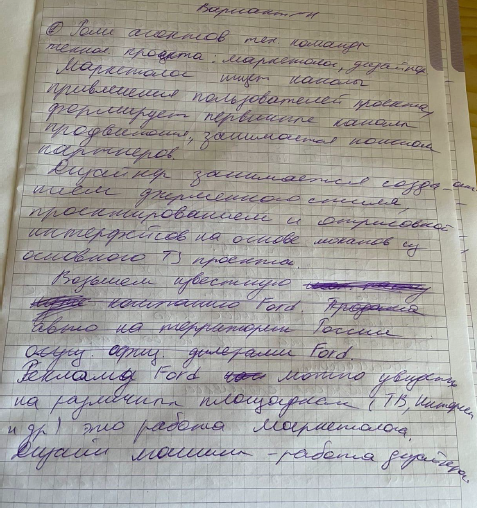 Вариант-4
① Роли агентов тех команды
техног проекта. маркетолог, дизайнер
Маркетолог ищет каналы
привлечения пользователей проекта,
формирует первичные каналы
продвижения, занимается поиском
партнеров.
Дизайнер занимается созда
нием фирменного стиля,
проектированием и отрисовкой
интерфейсов на основе из
основного ТЗ проекта.
Возьмем известную
компанию Ford. Продажа
авто на территории России
офиц. дилерами Ford.
Рекламу Ford можно увидеть
на различных площадках (ТВ, Интернет
и др) это работа маркетолога.
Дизайн машин - работа дизайнера.